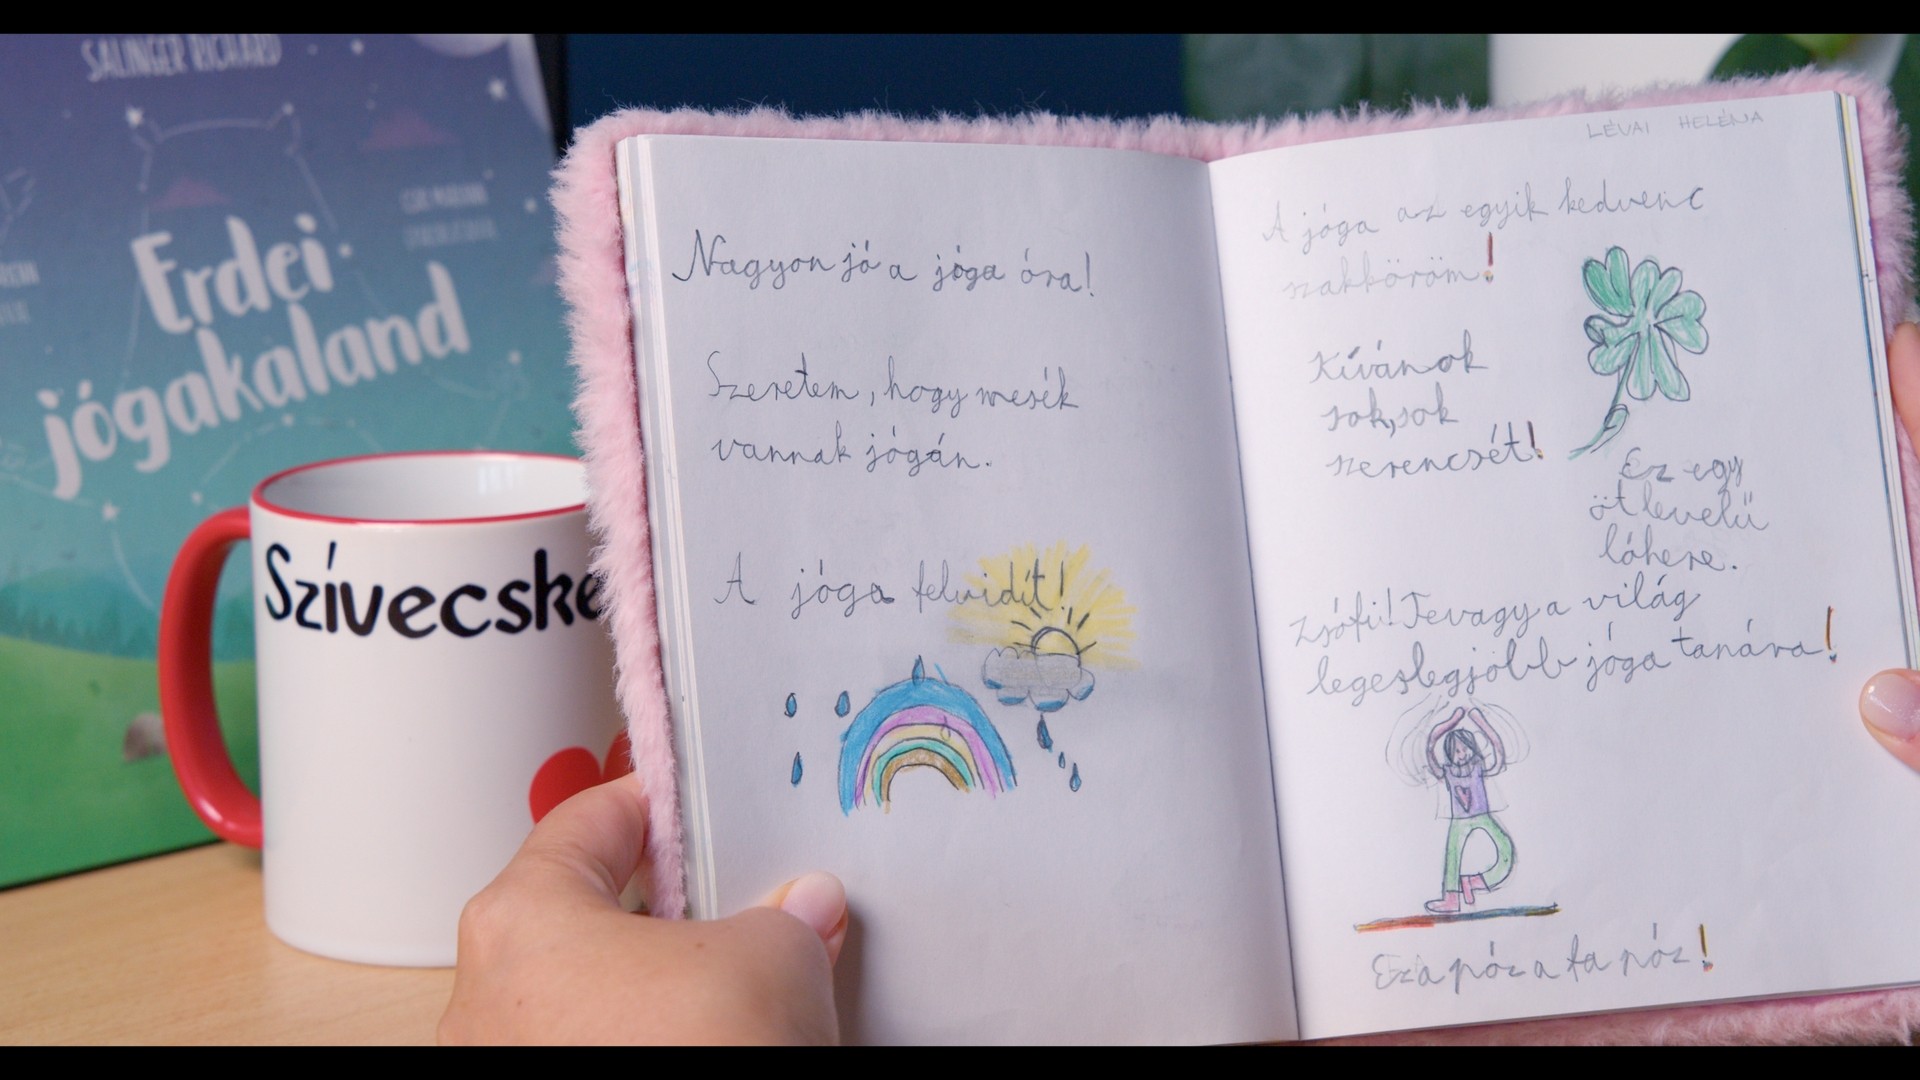 SALINGER RICHÁRD
Erdei
jógakaland
Szívecske
Nagyon jó a jóga óra!
Szeretem, hogy mesék
vannak jógán.
A jóga felvidít!
LÉVAI HELÉNA
A jóga az egyik kedvenc
szakköröm!
Kívánok
sok,sok
szerencsét!
Ez egy
öt levelű
lóhere.
Zsófi! Te vagy a világ
legeslegjobb jóga tanára!
Ez a póz a fa póz!